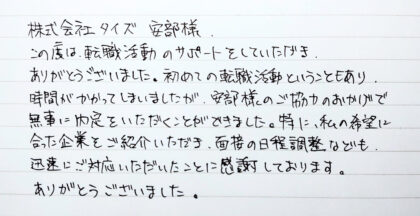 株式会社タイズ 安部様、
この度は、転職活動のサポートをしていただき、
ありがとうございました。初めての転職活動ということもあり、
時間がかかってしまいましたが、安部様のご協力のおかげで
無事に内定をいただくことができました。特に、私の希望に
合った企業をご紹介いただき、面接の日程調整なども、
迅速にご対応いただいたことに感謝しております。
ありがとうございました。